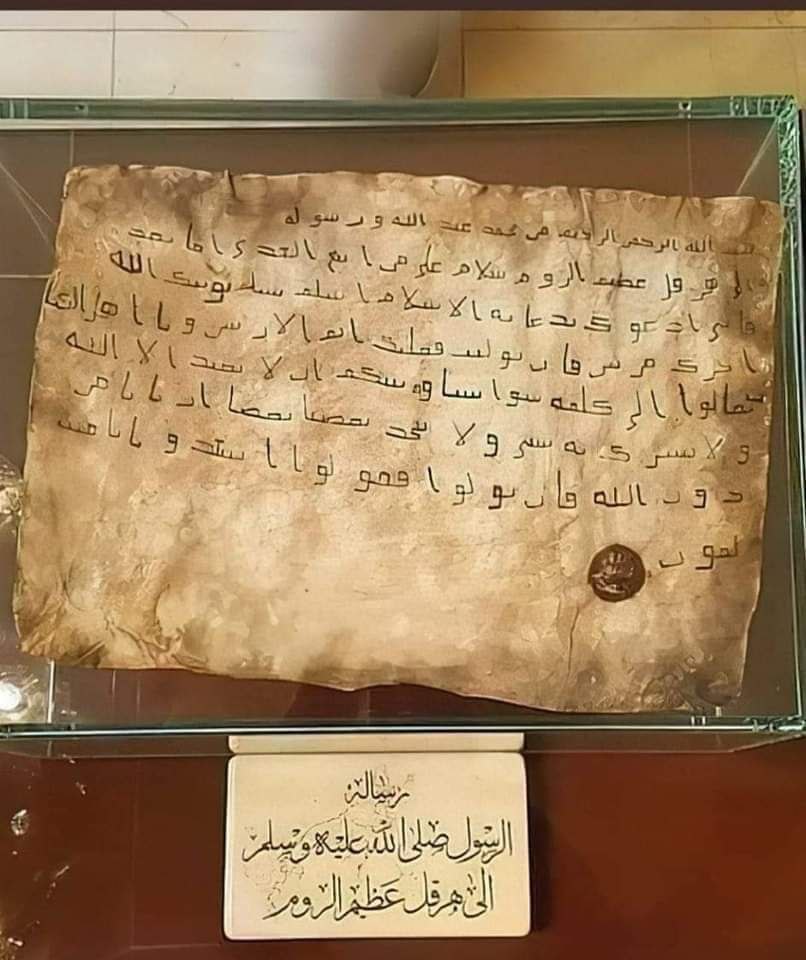 بسم الله الرحمن الرحيم من محمد عبد الله ورسوله
الى هرقل عظيم الروم سلام على من اتبع الهدى اما بعد
فاني ادعوك بدعاية الاسلام اسلم تسلم يوتك الله
اجرك مرتين فان توليت فعليك اثم الاريسين ويا اهل الكتا
ب تعالوا الى كلمة سوا بيننا وبينكم ان لا نعبد الا الله
ولا نشرك به شي ولا يتخذ بعضنا بعضا اربابا من
دون الله فان تولوا فقولوا اشهدوا بانا مس
لمون
رسالة
الرسول صلى الله عليه وسلم
الى هرقل عظيم الروم